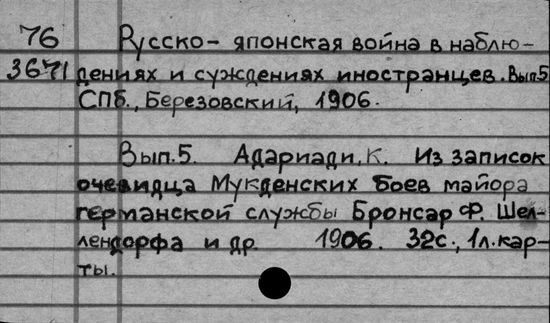 76 Русско-японская война в наблю-
3671 дениях и суждениях иностранцев. Вып.5
СПб., Березовский, 1906.
Вып.5. Адариади, К. Из записок
очевидца Мукденских боев майора
германской службы Бронсар Ф. Шел-
лендорфа и др. 1906. 32с., 1л.кар-
ты.